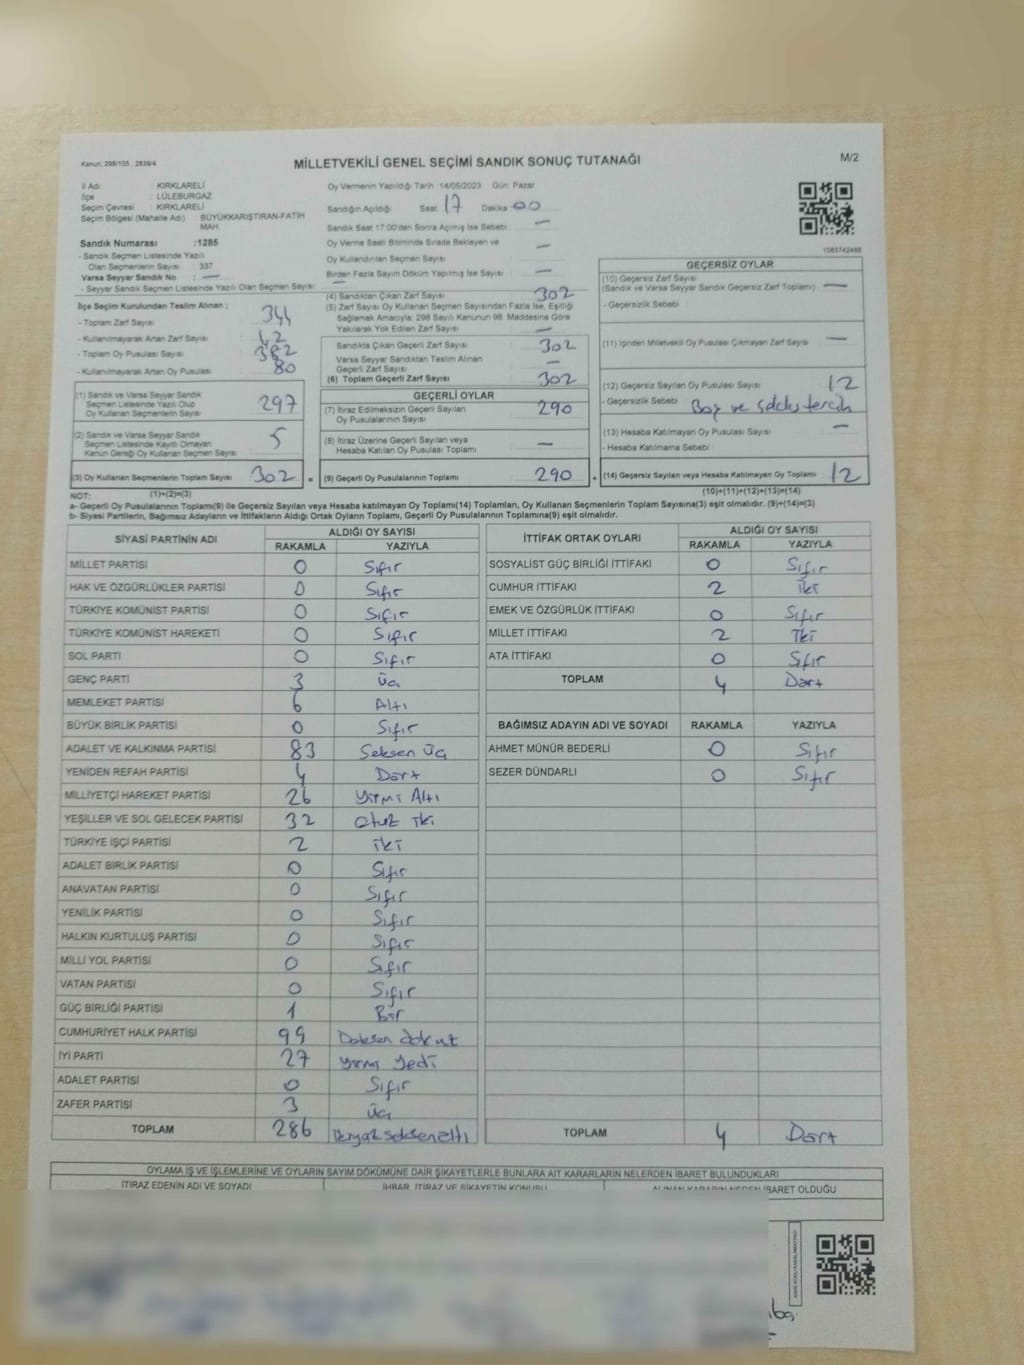 Kanun: 298/105 , 2839/4
MİLLETVEKİLİ GENEL SEÇİMİ SANDIK SONUÇ TUTANAĞI
M/2
İl Adı : KIRKLARELİ
İlçe : LÜLEBURGAZ
Seçim Çevresi : KIRKLARELİ
Seçim Bölgesi (Mahalle Adı) : BÜYÜKKARIŞTIRAN-FATİH MAH.
Sandık Numarası :1285
- Sandık Seçmen Listesinde Yazılı
Olan Seçmenlerin Sayısı : 337
Varsa Seyyar Sandık No : —
- Seyyar Sandık Seçmen Listesinde Yazılı Olan Seçmen Sayısı: —
Oy Vermenin Yapıldığı Tarih :14/05/2023 Gün: Pazar
Sandığın Açıldığı Saat: 17 Dakika: 00
Sandık Saat 17:00'den Sonra Açılmış İse Sebebi : —
Oy Verme Saati Bitiminde Sırada Bekleyen ve
Oy Kullandırılan Seçmen Sayısı : —
Birden Fazla Sayım Döküm Yapılmış İse Sayısı : —
1083742468
İlçe Seçim Kurulundan Teslim Alınan ;
- Toplam Zarf Sayısı : 344
- Kullanılmayarak Artan Zarf Sayısı : 42
- Toplam Oy Pusulası Sayısı : 382
- Kullanılmayarak Artan Oy Pusulası : 80
(1) Sandık ve Varsa Seyyar Sandık
Seçmen Listesinde Yazılı Olup
Oy Kullanan Seçmenlerin Sayısı : 297
(2) Sandık ve Varsa Seyyar Sandık
Seçmen Listesinde Kayıtlı Olmayan
Kanun Gereği Oy Kullanan Seçmen Sayısı : 5
(3) Oy Kullanan Seçmenlerin Toplam Sayısı : 302 =
(4) Sandıktan Çıkan Zarf Sayısı : 302
(5) Zarf Sayısı Oy Kullanan Seçmen Sayısından Fazla İse, Eşitliği
Sağlamak Amacıyla; 298 Sayılı Kanunun 98. Maddesine Göre
Yakılarak Yok Edilen Zarf Sayısı : —
Sandıkta Çıkan Geçerli Zarf Sayısı : 302
Varsa Seyyar Sandıktan Teslim Alınan
Geçerli Zarf Sayısı : —
(6) Toplam Geçerli Zarf Sayısı : 302
GEÇERLİ OYLAR
(7) İtiraz Edilmeksizin Geçerli Sayılan
Oy Pusulalarının Sayısı : 290
(8) İtiraz Üzerine Geçerli Sayılan veya
Hesaba Katılan Oy Pusulası Toplamı : —
(9) Geçerli Oy Pusulalarının Toplamı : 290 +
GEÇERSİZ OYLAR
(10) Geçersiz Zarf Sayısı
(Sandık ve Varsa Seyyar Sandık Geçersiz Zarf Toplamı) : —
- Geçersizlik Sebebi :
(11) İçinden Milletvekili Oy Pusulası Çıkmayan Zarf Sayısı : —
(12) Geçersiz Sayılan Oy Pusulası Sayısı : 12
- Geçersizlik Sebebi : Boş ve
(13) Hesaba Katılmayan Oy Pusulası Sayısı : —
- Hesaba Katılmama Sebebi :
(14) Geçersiz Sayılan veya Hesaba Katılmayan Oy Toplamı : 12
NOT: (1)+(2)=(3)
(10)+(11)+(12)+(13)=(14)
a- Geçerli Oy Pusulalarının Toplamı(9) ile Geçersiz Sayılan veya Hesaba katılmayan Oy Toplamı(14) Toplamları, Oy Kullanan Seçmenlerin Toplam Sayısına(3) eşit olmalıdır. (9)+(14)=(3)
b- Siyasi Partilerin, Bağımsız Adayların ve İttifakların Aldığı Ortak Oyların Toplamı, Geçerli Oy Pusulalarının Toplamına(9) eşit olmalıdır.
SİYASİ PARTİNİN ADI
ALDIĞI OY SAYISI
RAKAMLA YAZIYLA
MİLLET PARTİSİ 0 Sıfır
HAK VE ÖZGÜRLÜKLER PARTİSİ 0 Sıfır
TÜRKİYE KOMÜNİST PARTİSİ 0 Sıfır
TÜRKİYE KOMÜNİST HAREKETİ 0 Sıfır
SOL PARTİ 0 Sıfır
GENÇ PARTİ 3 üç
MEMLEKET PARTİSİ 6 Altı
BÜYÜK BİRLİK PARTİSİ 0 Sıfır
ADALET VE KALKINMA PARTİSİ 83 Seksen üç
YENİDEN REFAH PARTİSİ 4 Dört
MİLLİYETÇİ HAREKET PARTİSİ 26 yirmi Altı
YEŞİLLER VE SOL GELECEK PARTİSİ 32 otuz iki
TÜRKİYE İŞÇİ PARTİSİ 2 iki
ADALET BİRLİK PARTİSİ 0 Sıfır
ANAVATAN PARTİSİ 0 Sıfır
YENİLİK PARTİSİ 0 Sıfır
HALKIN KURTULUŞ PARTİSİ 0 Sıfır
MİLLİ YOL PARTİSİ 0 Sıfır
VATAN PARTİSİ 0 Sıfır
GÜÇ BİRLİĞİ PARTİSİ 1 Bir
CUMHURİYET HALK PARTİSİ 99 Doksan dokuz
İYİ PARTİ 27 yirmi yedi
ADALET PARTİSİ 0 Sıfır
ZAFER PARTİSİ 3 üç
TOPLAM 286 ikiyüz seksen altı
İTTİFAK ORTAK OYLARI
ALDIĞI OY SAYISI
RAKAMLA YAZIYLA
SOSYALİST GÜÇ BİRLİĞİ İTTİFAKI 0 Sıfır
CUMHUR İTTİFAKI 2 iki
EMEK VE ÖZGÜRLÜK İTTİFAKI 0 Sıfır
MİLLET İTTİFAKI 2 İki
ATA İTTİFAKI 0 Sıfır
TOPLAM 4 Dört
BAĞIMSIZ ADAYIN ADI VE SOYADI RAKAMLA YAZIYLA
AHMET MÜNÜR BEDERLİ 0 Sıfır
SEZER DÜNDARLI 0 Sıfır
TOPLAM 4 Dört
OYLAMA İŞ VE İŞLEMLERİNE VE OYLARIN SAYIM DÖKÜMÜNE DAİR ŞİKAYETLERLE BUNLARA AİT KARARLARIN NELERDEN İBARET BULUNDUKLARI
İTİRAZ EDENİN ADI VE SOYADI
İHBAR, İTİRAZ VE ŞİKAYETİN KONUSU
ALINAN KARARIN NEDEN İBARET OLDUĞU